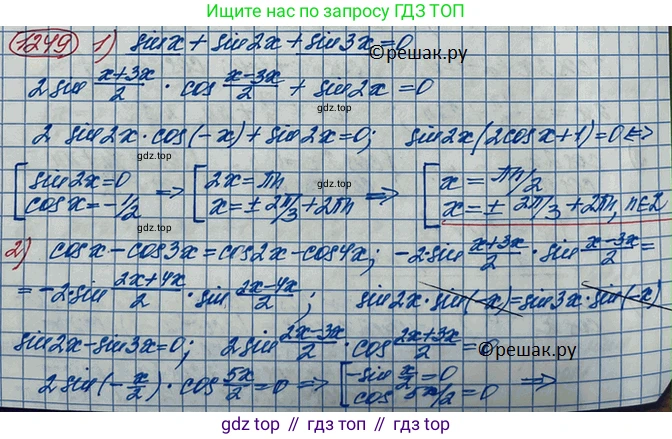 Ищите нас по запросу ГДЗ ТОП
1249 1) sin x + sin 2x + sin 3x = 0 ©решак.ру
2 sin (x+3x)/2 · cos (x-3x)/2 + sin 2x = 0
gdz.top
2 sin 2x · cos(-x) + sin 2x = 0; sin 2x (2cos x + 1) = 0 <=>
gdz.top gdz.top
[ sin 2x = 0 cos x = -1/2 => [ 2x = πn x = ± 2π/3 + 2πn => [ x = πn/2 x = ± 2π/3 + 2πn, n∈Z
gdz.top
2) cos x - cos 3x = cos 2x - cos 4x; -2 sin (x+3x)/2 · sin (x-3x)/2 =
gdz.top
= -2 · sin (2x+4x)/2 · sin (2x-4x)/2; sin 2x · sin(-x) = sin 3x · sin(-x)
gdz.top
sin 2x - sin 3x = 0; 2 sin (2x-3x)/2 · cos (2x+3x)/2 = 0
©решак.ру
2 sin(-x/2) · cos 5x/2 = 0 => [ -sin x/2 = 0 cos 5x/2 = 0 =>
gdz.top gdz.top
gdz.top // гдз.топ // гдз топ // gdz top